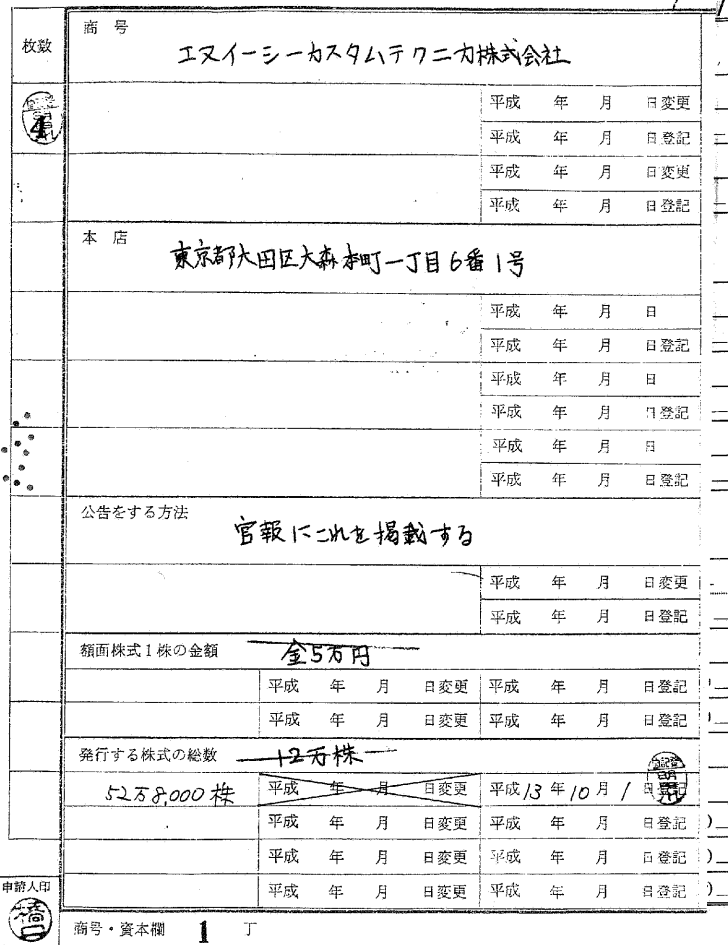 枚数
商号
エヌイーシーカスタムテクニカ株式会社
4
平成 年 月 日変更
平成 年 月 日登記
平成 年 月 日変更
平成 年 月 日登記
本店
東京都大田区大森本町一丁目6番1号
平成 年 月 日
平成 年 月 日登記
平成 年 月 日
平成 年 月 日登記
平成 年 月 日
平成 年 月 日登記
公告をする方法
官報にこれを掲載する
平成 年 月 日変更
平成 年 月 日登記
額面株式1株の金額 金5万円
平成 年 月 日変更 平成 年 月 日登記
平成 年 月 日変更 平成 年 月 日登記
発行する株式の総数 12万株
52万8,000株 平成 年 月 日変更 平成13年10月1日登記
平成 年 月 日変更 平成 年 月 日登記
平成 年 月 日変更 平成 年 月 日登記
平成 年 月 日変更 平成 年 月 日登記
申請人印
商号・資本欄 1 丁